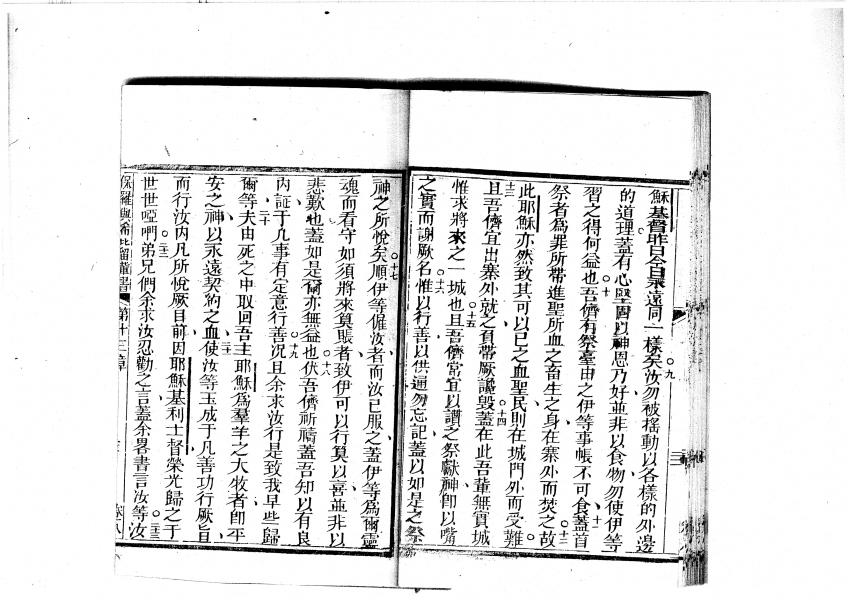 穌基督昨日今日永遠同一樣矣○九汝勿被搖動以各樣的外邊
的道理蓋有心堅固以神恩乃好並非以食物勿使伊等
習之得何益也○十吾儕有祭臺由之伊等事帳不可食○十一蓋首
祭者為罪所帶進聖所血之畜生之身在寨外而焚之○十二故
此耶穌亦然致其可以己之血聖民則在城門外而受難○
十三且吾儕宜出寨外就之負帶厥譏毀○十四蓋在此吾輩無實城
惟求將來之一城也○十五且吾儕常宜以讚之祭獻神即以嘴
之實而謝厥名○十六惟以行善以供通勿忘記蓋以如是之祭
神之所悅矣○十七順伊等僱汝者而汝已服之蓋伊等為爾靈
魂而看守如須將來算賬者致伊可以行算以喜並非以
悲歎也蓋如是爾亦無益也○十八伏吾儕祈禱蓋吾知以有良
內証于凡事有定意行善○十九況且余求汝行是致我早些歸
爾等○二十夫由死之中取回吾主耶穌為羣羊之大牧者即平
安之神以永遠契約之血○二一使汝等玉成于凡善功行厥旨
而行汝內凡所悅厥目前因耶穌基利士督榮光歸之于
世世啞門○二二弟兄們余求汝忍勸之言蓋余畧書言汝等○二三汝
保羅與希比留輩書 第十三章